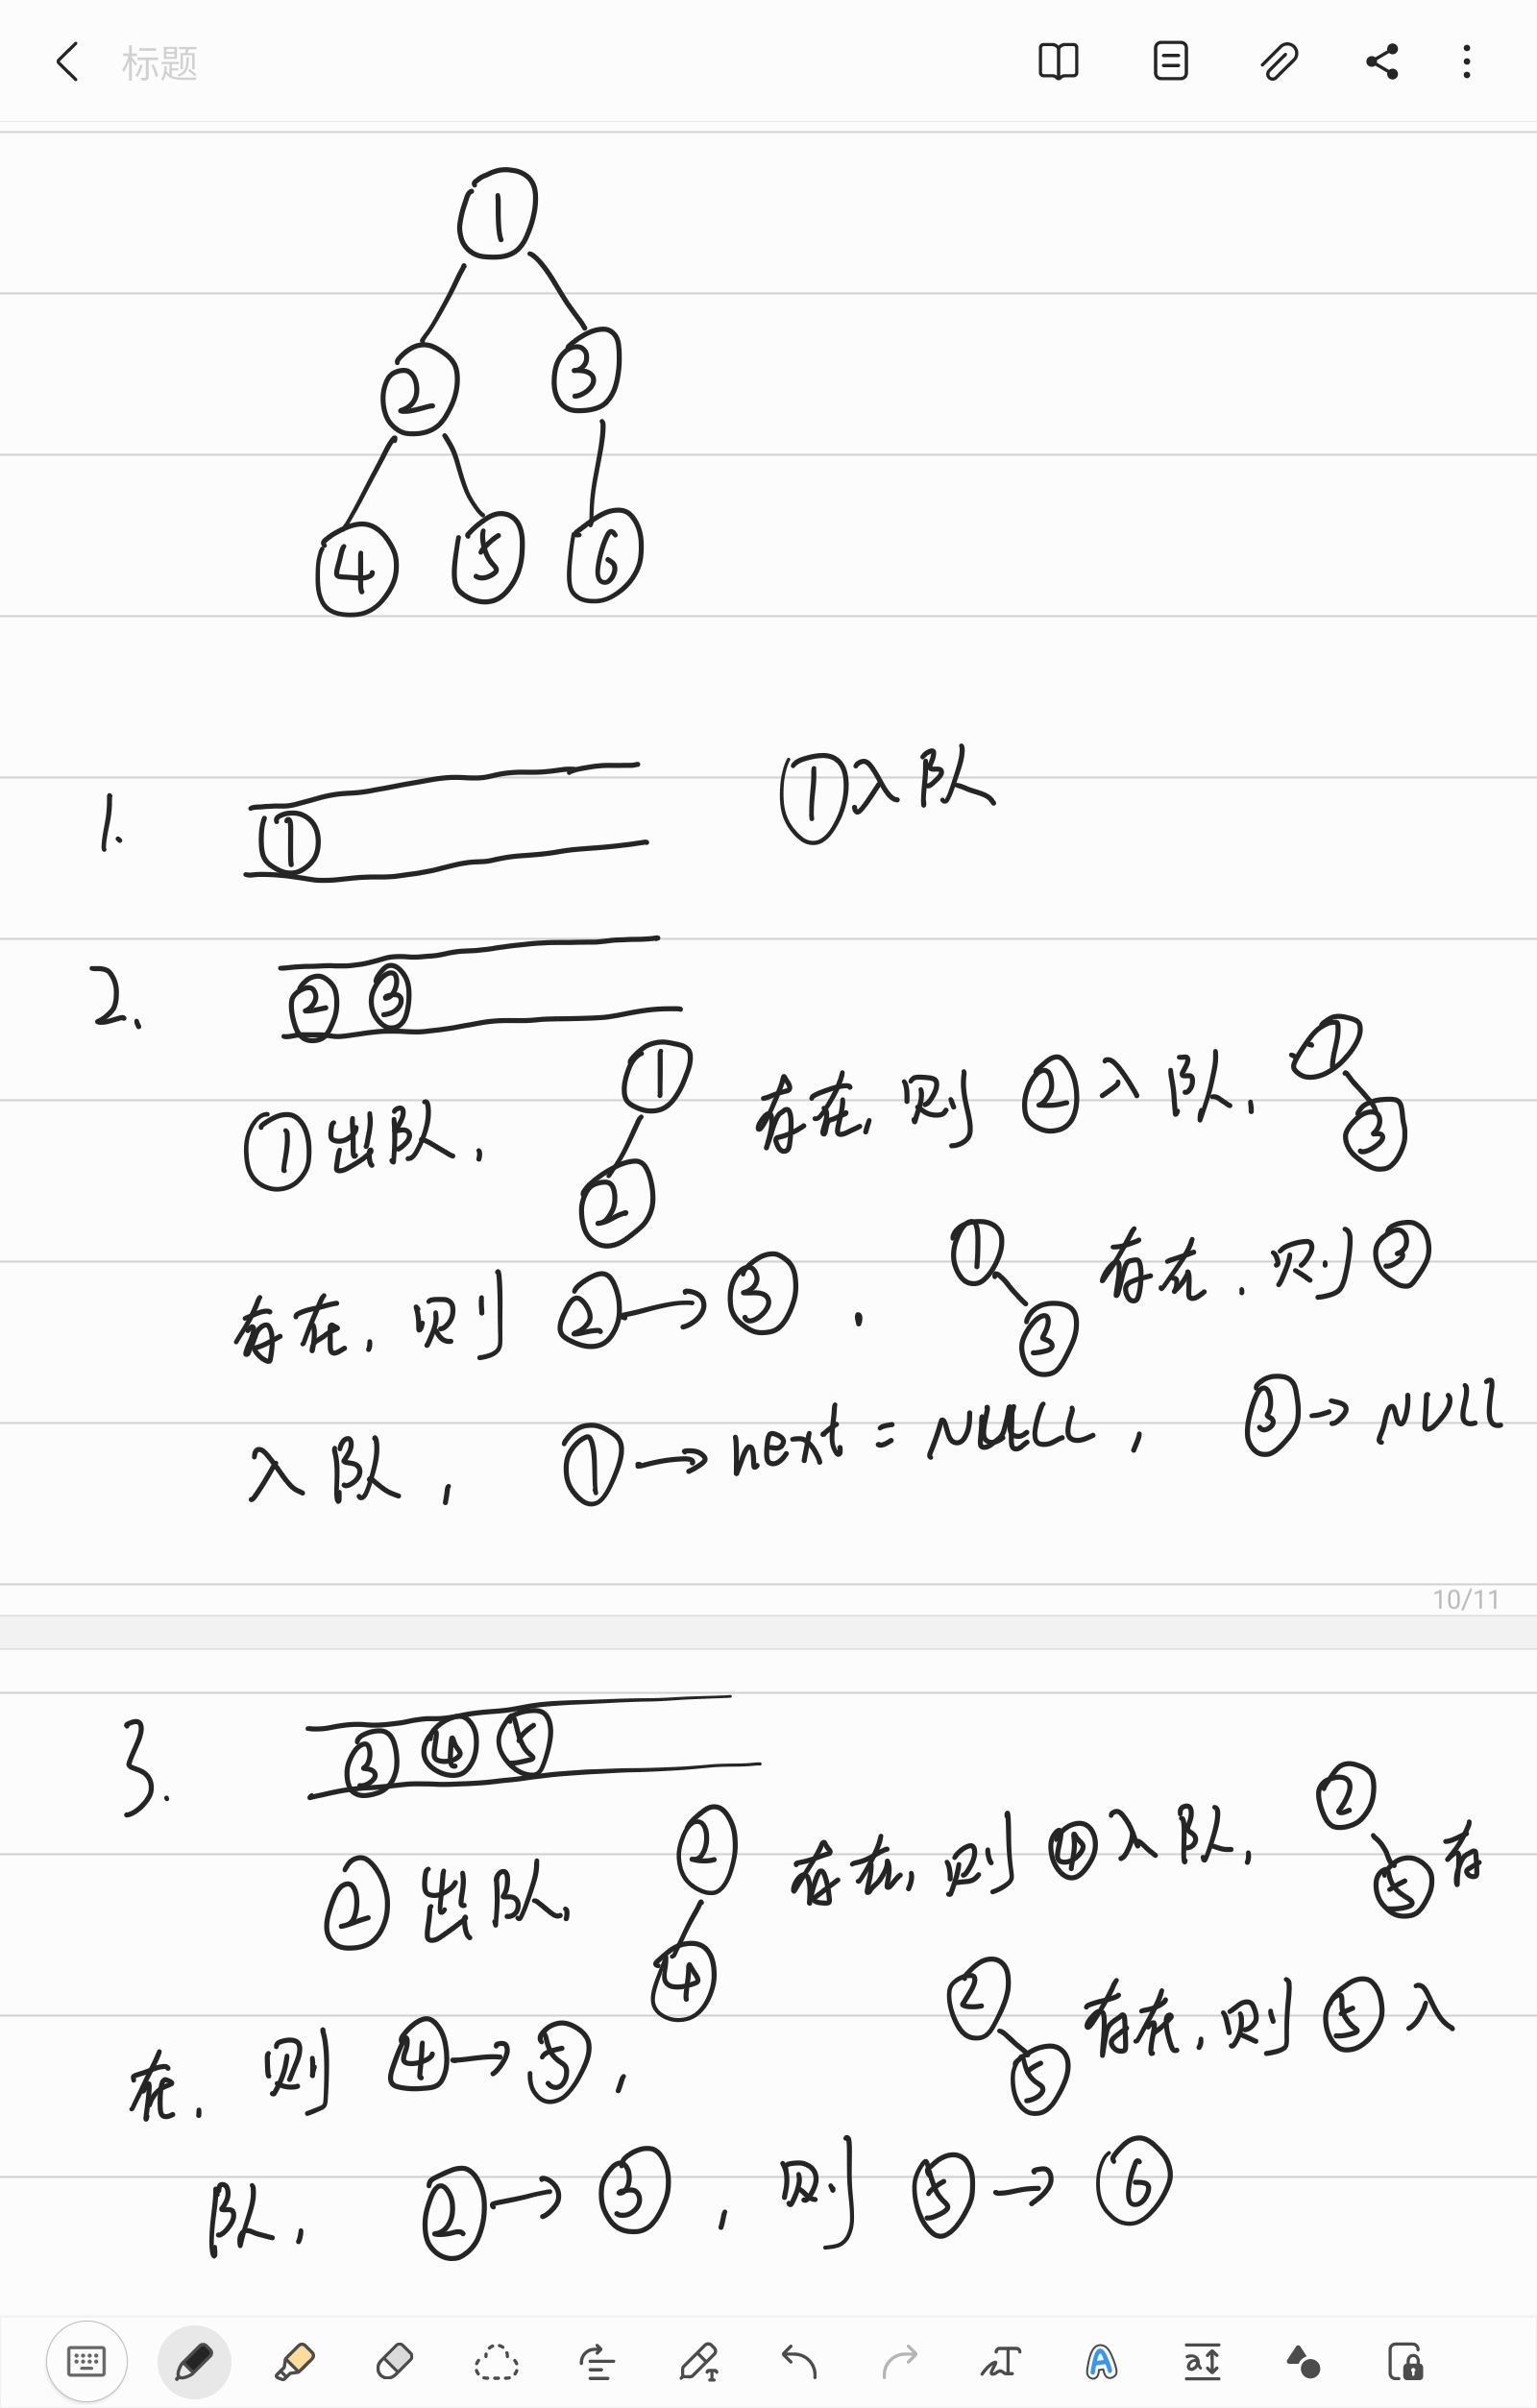 标题
①
② ③
④ ⑤ ⑥
1. ① ①入队
2. ② ③
①出队. ① ② 若存在, 则②入队. ① ③
若存在, 则②→③. ① ③ 若存在, 则③
入队, ①→next = NULL, ③→NULL
10/11
3. ③ ④ ⑤
②出队, ② ④ 若存在, 则④入队, ② ⑤ 存
在, 则④→⑤, ② ⑤ 若存在, 则⑤入
队, ②→③, 则⑤→⑥